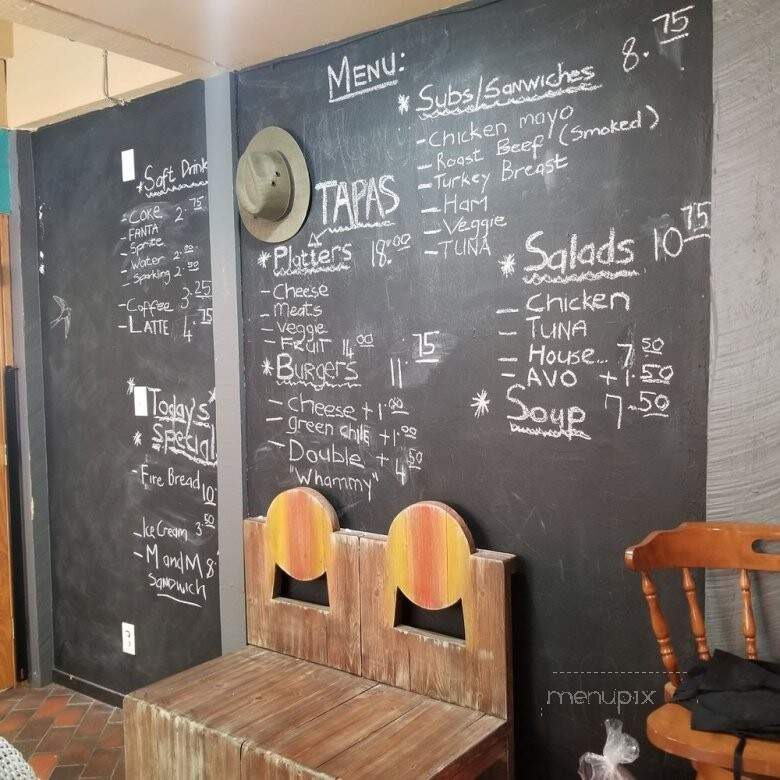 *Soft Drink
-COKE 2.75
-FANTA
-Sprite
-Water 2.00
-Sparkling 2.50
-Coffee 3.25
-LATTE 4.75
*Today's
*Special
-Fire Bread 10
-Ice Cream 3.50
-M and M 8.
SANDWICH
MENU:
TAPAS
*Platters 18.00
-Cheese
-Meats
-Veggie
-FRUIT 14.00
*BURGERS 11.75
-Cheese +1.00
-green chile +1.00
-Double +4.50
"Whammy"
*Subs/Sanwiches 8.75
-Chicken mayo
-Roast Beef (Smoked)
-Turkey Breast
-Ham
-Veggie
-TUNA
*Salads 10.75
-Chicken
-TUNA
-House... 7.50
-AVO +1.50
*Soup 7.50
menupix